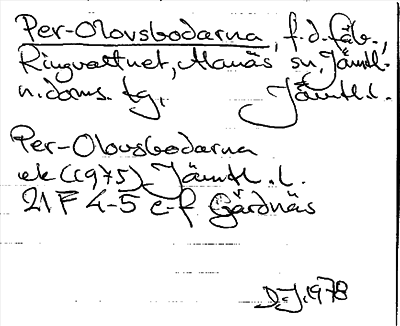 Per-Olovsbodarna, f.d. fäb.,
Ringvattnet, Alanäs sn, Jämtl.
n. doms. tg, Jämtl. l.
Per-Olovsbodarna
ek (1975) Jämtl. l.
21 F 4-5 e-f Gårdnäs
D-J. 1978